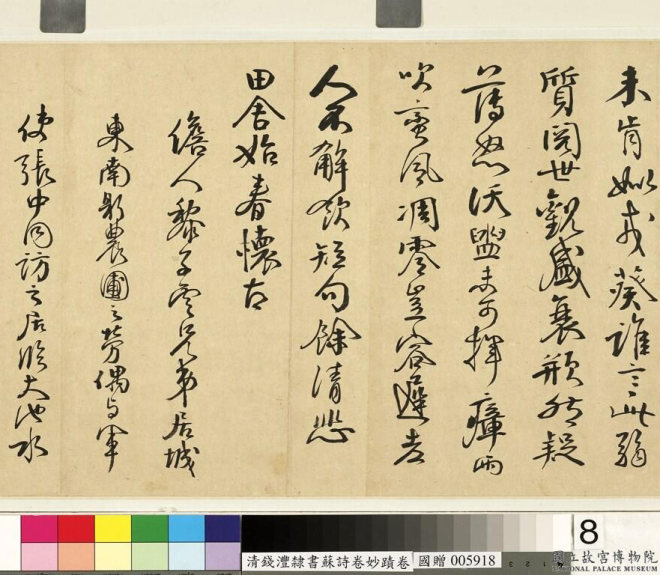 未肯姒戎葵誰言此弱
質閱世觀盛衰頩然疑
薄怒沃盥未可揮瘴雨
吹蠻風凋零豈容遲老
人不解飲短句餘清悲
田舍始春懷古
儋人黎子雲兄弟居城
東南躬農圃之勞偶與軍
使張中同訪之居臨大池水
清錢灃隸書蘇詩卷妙蹟卷 國贈 005918
8
國立故宮博物院
NATIONAL PALACE MUSEUM